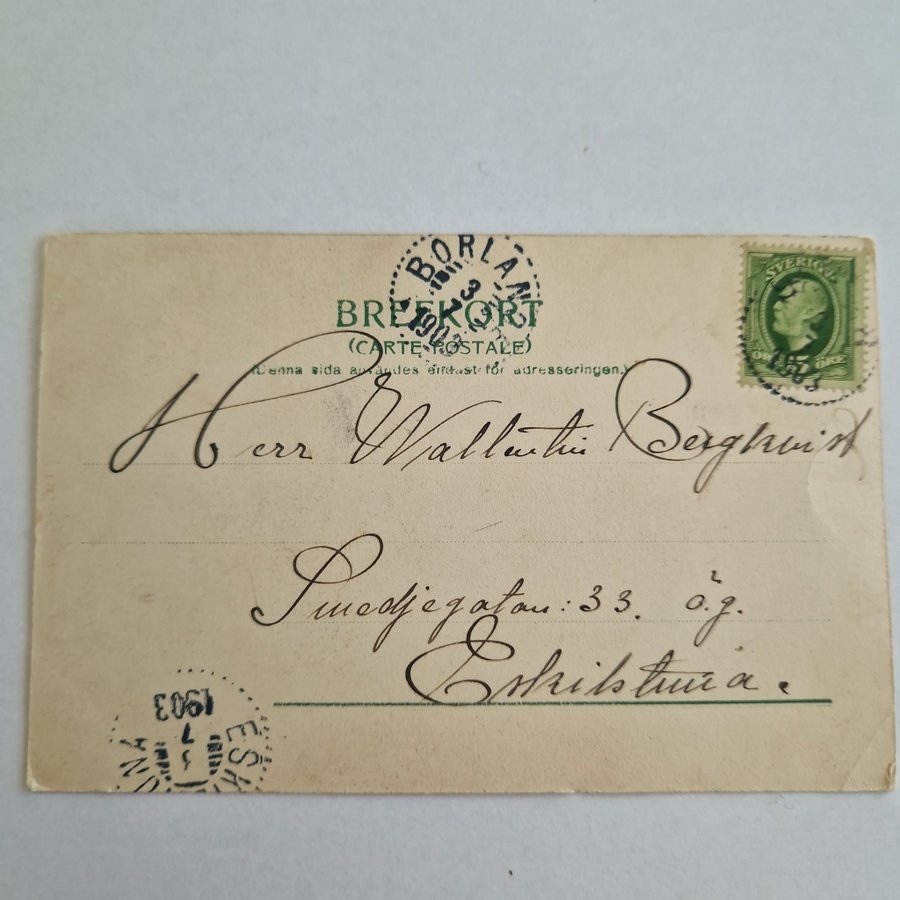 BORLAN
3
7
1903
SVERIGE
5
ÖRE
1903
BREFKORT
(CARTE POSTALE)
(Denna sida användes endast för adresseringen.)
Herr Wallentin Bergkvist
Smedjegatan: 33. ö.g.
Eskilstuna.
ESKI
UNA
7
1903